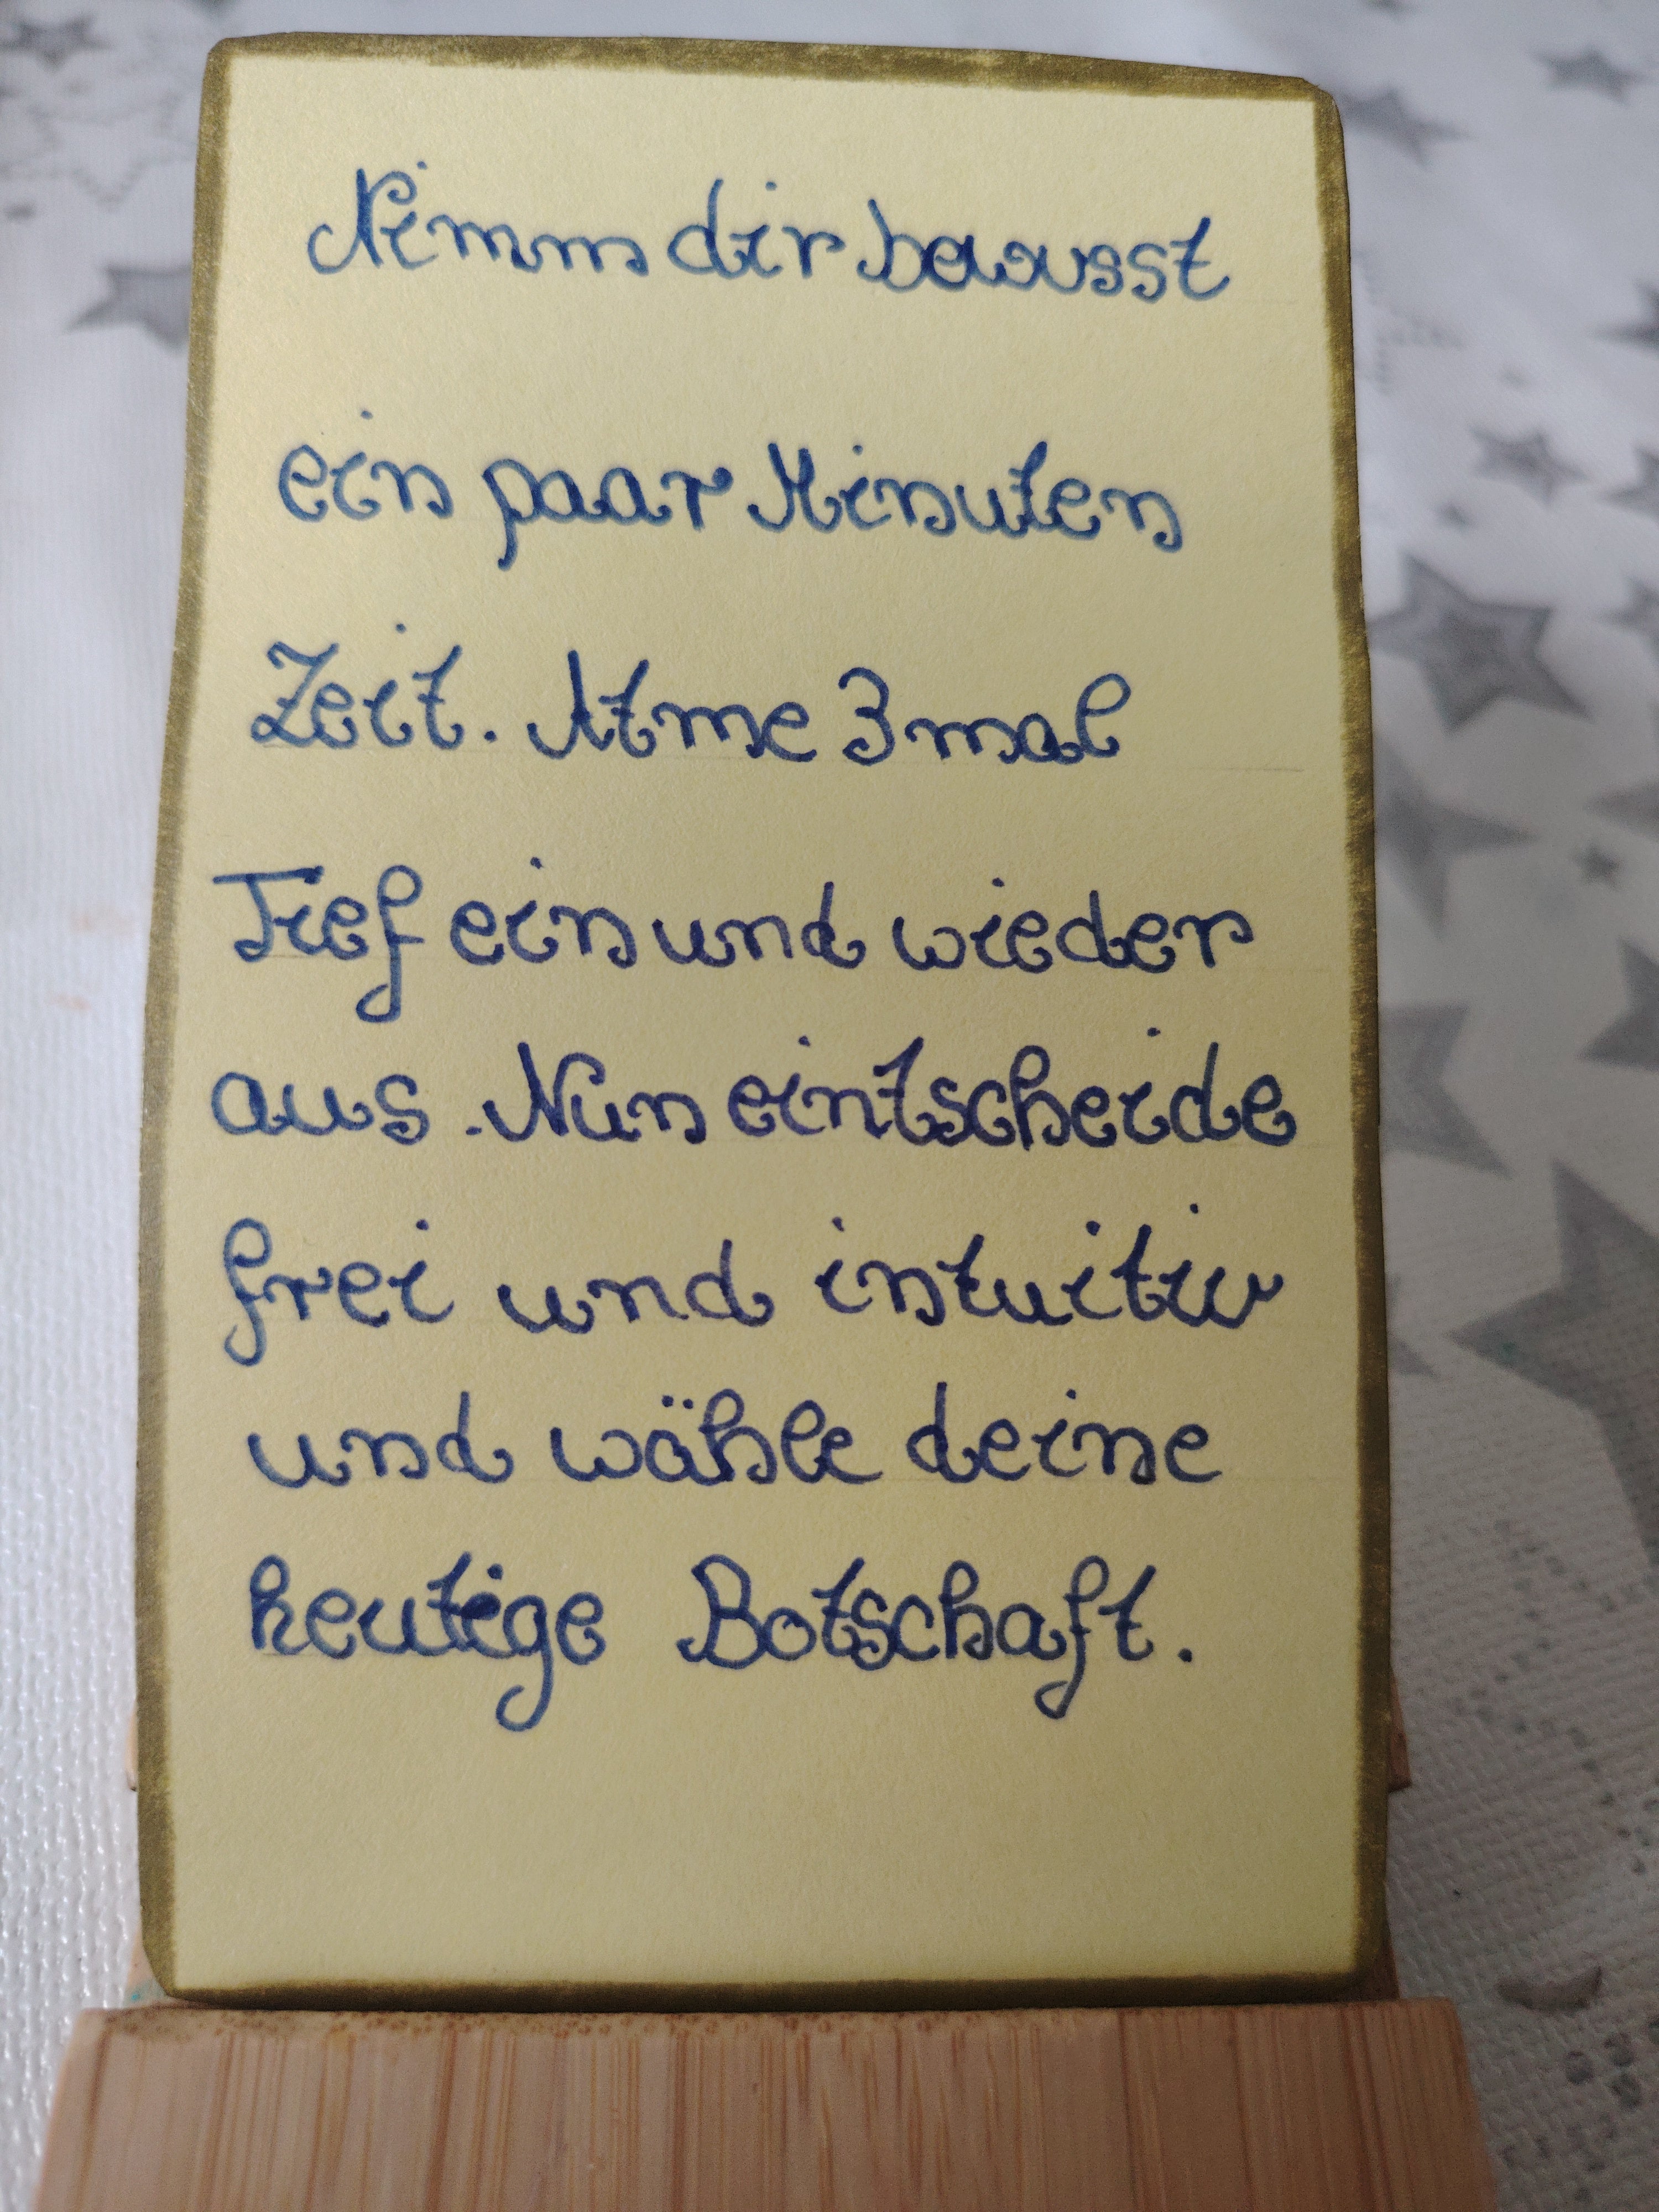 Nimm dir bewusst
ein paar Minuten
Zeit. Atme 3 mal
Tief ein und wieder
aus. Nun eintscheide
frei und intuitiv
und wähle deine
heutige Botschaft.